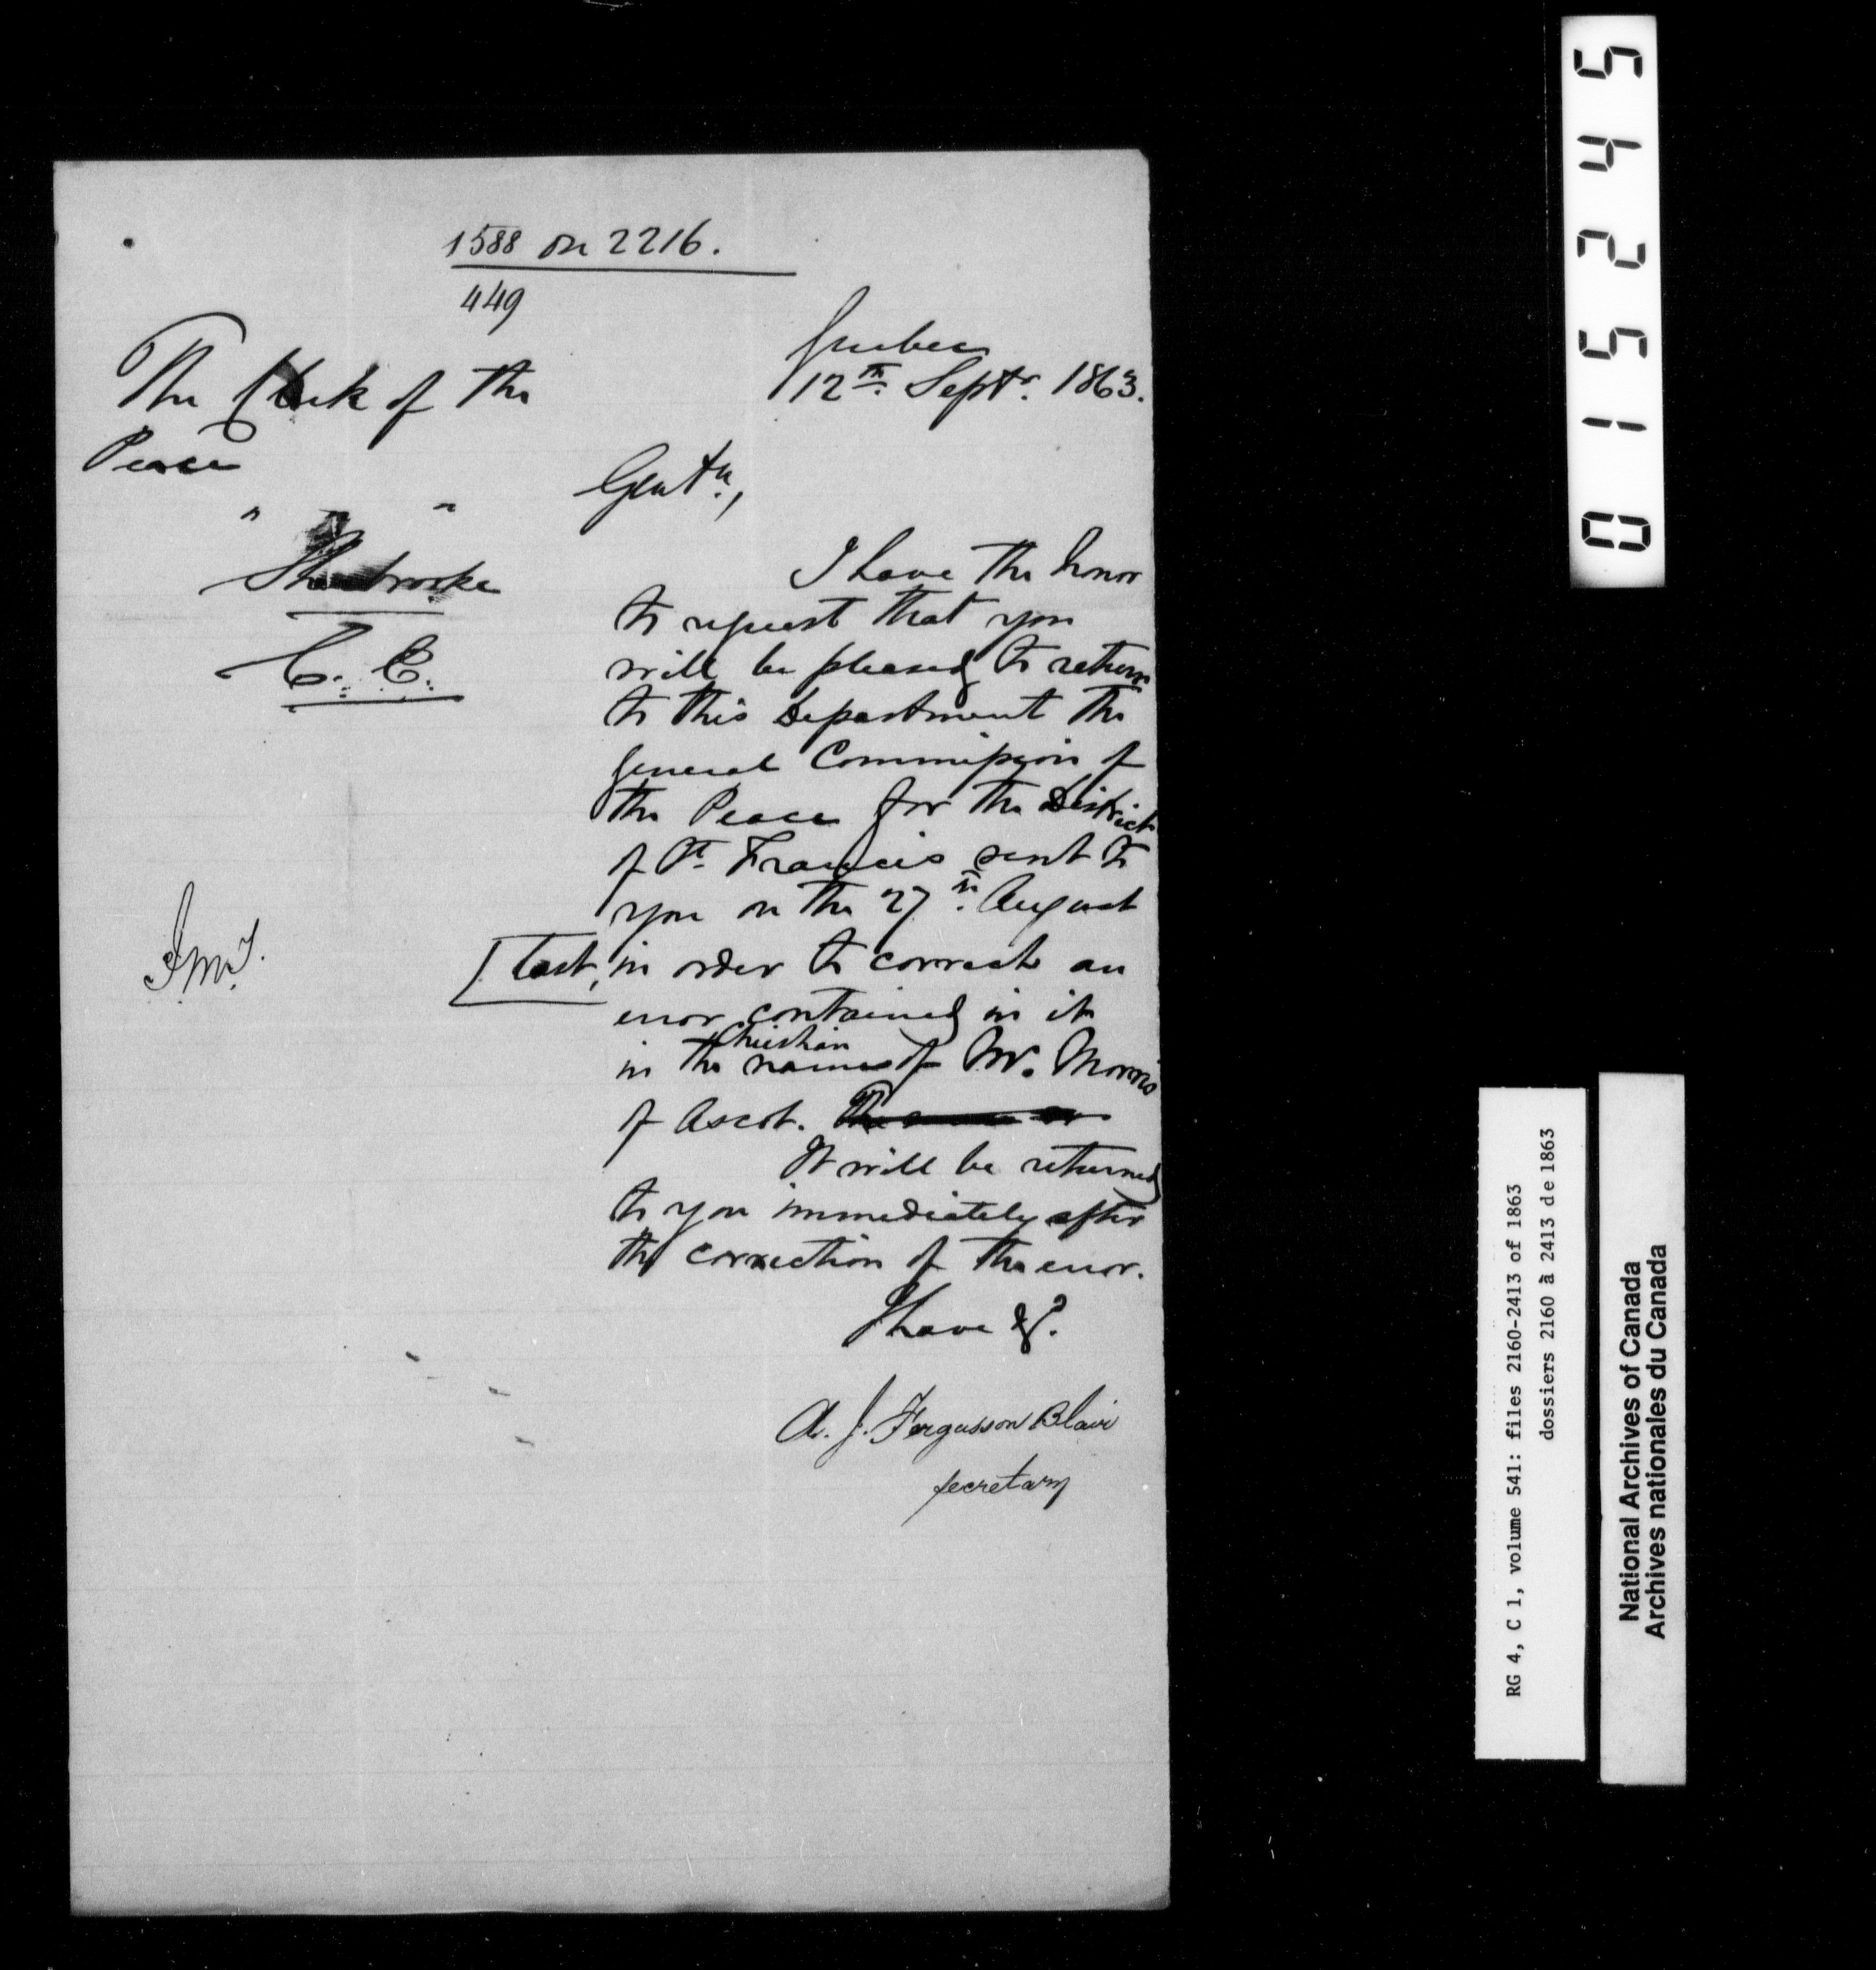 1588 on 2216.
449
Quebec
12th. Septr. 1863.
The Clerk of the
Peace
" "
Sherbrooke
C. E.
Gentn.,
I have the honor
to request that you
will be pleased to return
to this Department the
General Commission of
the Peace for the District
of St. Francis sent to
you on the 27th. August
last, in order to correct an
error contained in it
in the Christian names of Mr. Morris
of Ascot.
It will be returned
to you immediately after
the correction of the error.
I have &c.
A. J. Fergusson Blair
Secretary
015245
RG 4, C 1, volume 541: files 2160-2413 of 1863
dossiers 2160 à 2413 de 1863
National Archives of Canada
Archives nationales du Canada